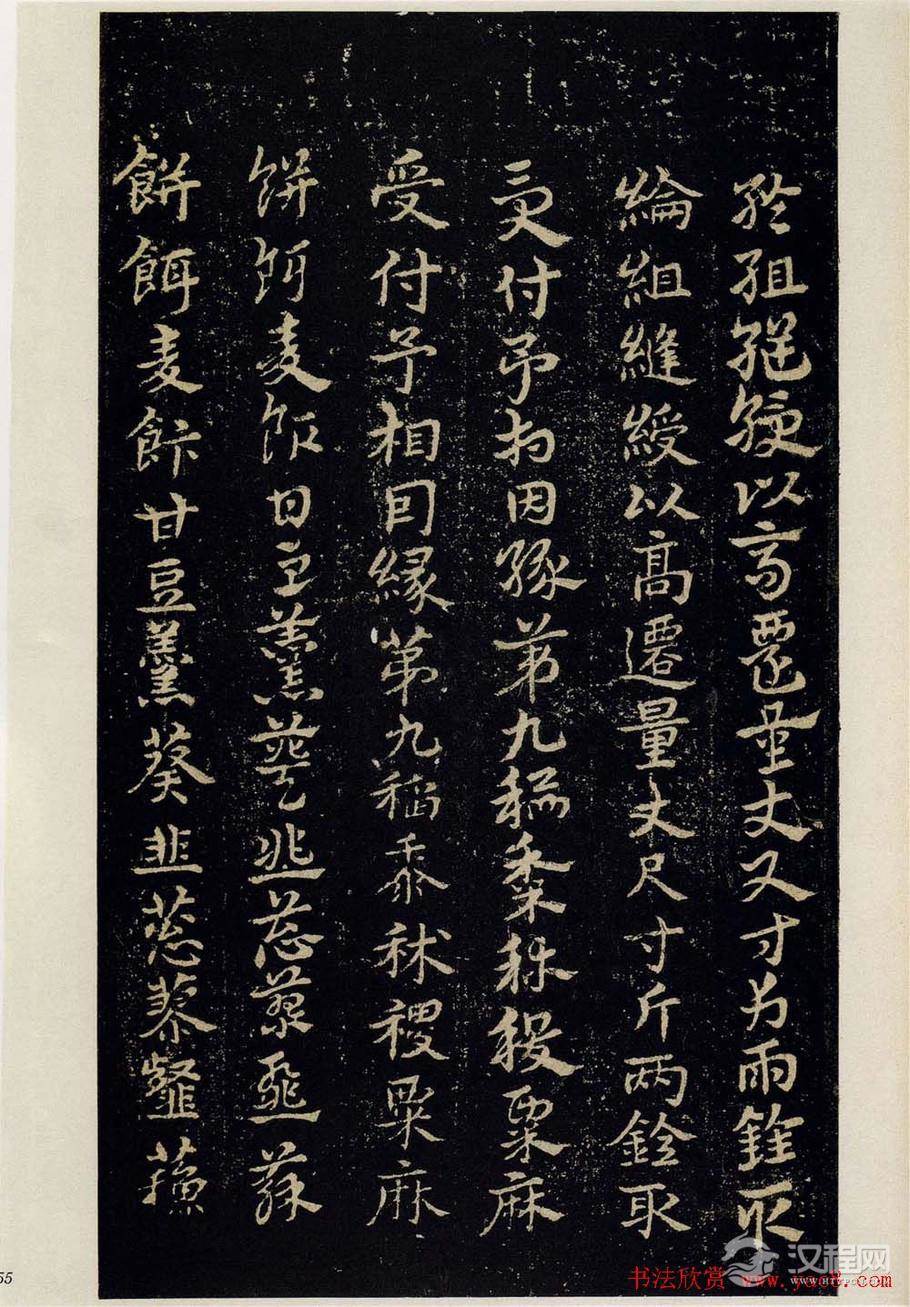 綸組縌綬以高遷量丈尺寸斤兩銓取
綸組縫綬以高遷量丈尺寸斤两銓取
受付予相因緣第九稻黍秫稷粟麻
受付予相因緣第九稻黍秫稷粟麻
餅餌麦飯甘豆羹葵韭葱蓼韰蘇
餅餌麦飰甘豆羹葵韭葱蓼韰蘓
55
汉程网
书法欣赏 www.yac8.com